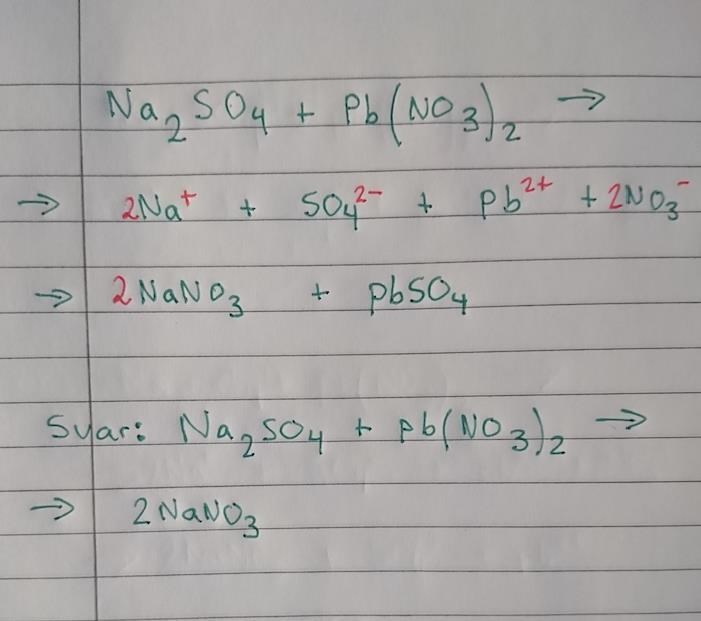 Na₂SO₄ + Pb(NO₃)₂ →
→ 2Na⁺ + SO₄²⁻ + Pb²⁺ + 2NO₃⁻
→ 2NaNO₃ + pbSO₄
Svar: Na₂SO₄ + pb(NO₃)₂ →
→ 2NaNO₃